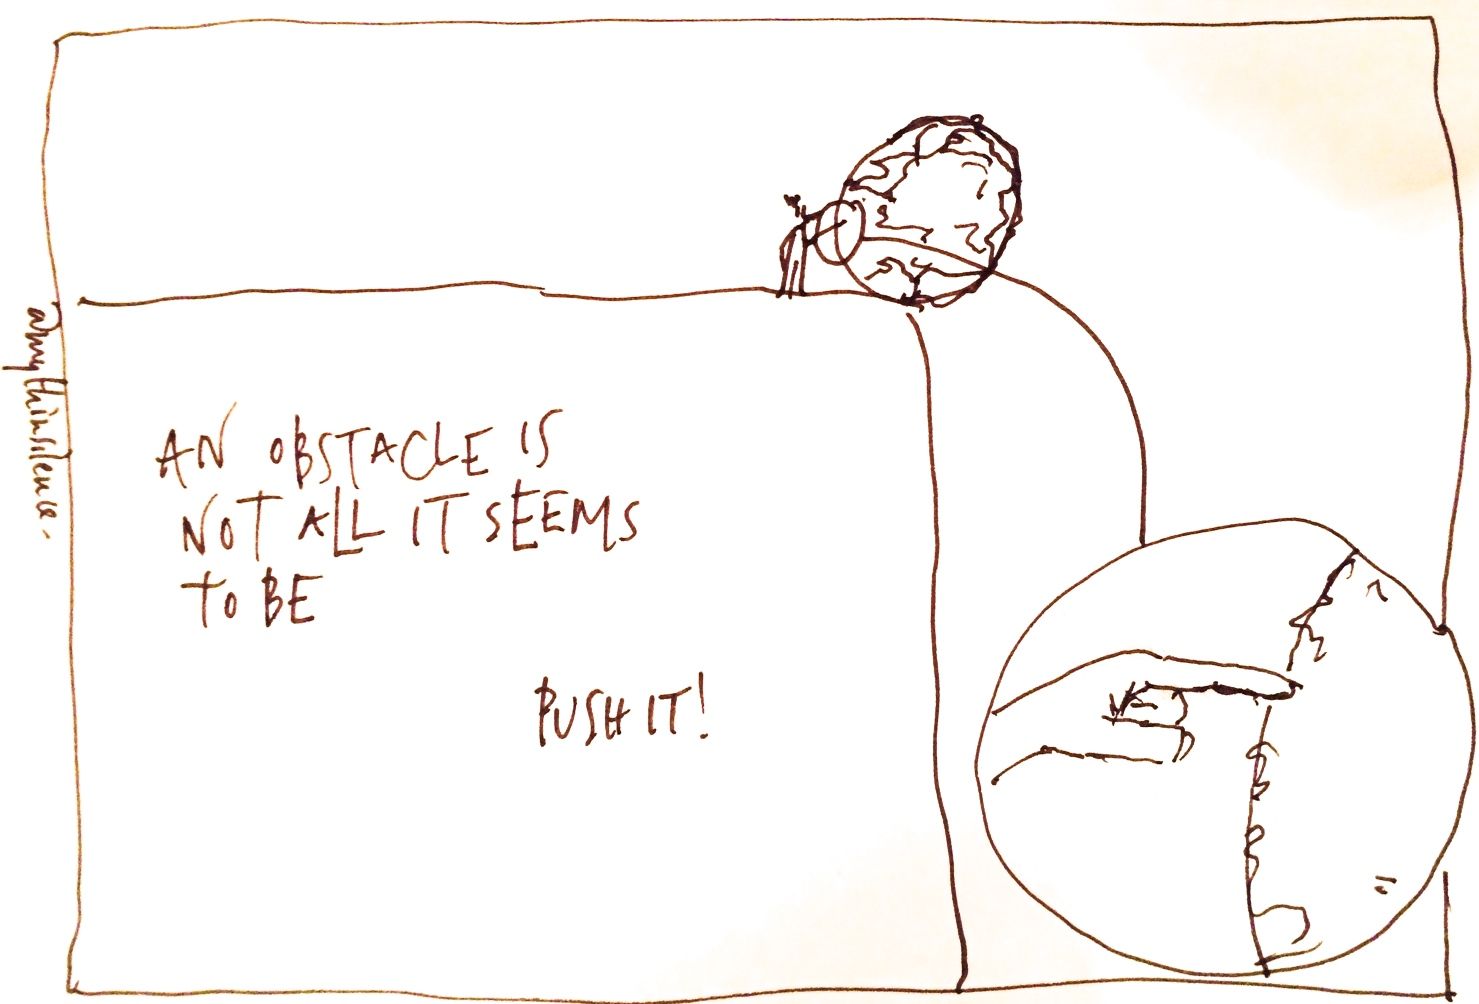 AN OBSTACLE IS
NOT ALL IT SEEMS
TO BE
PUSH IT!
@mythinsilence.